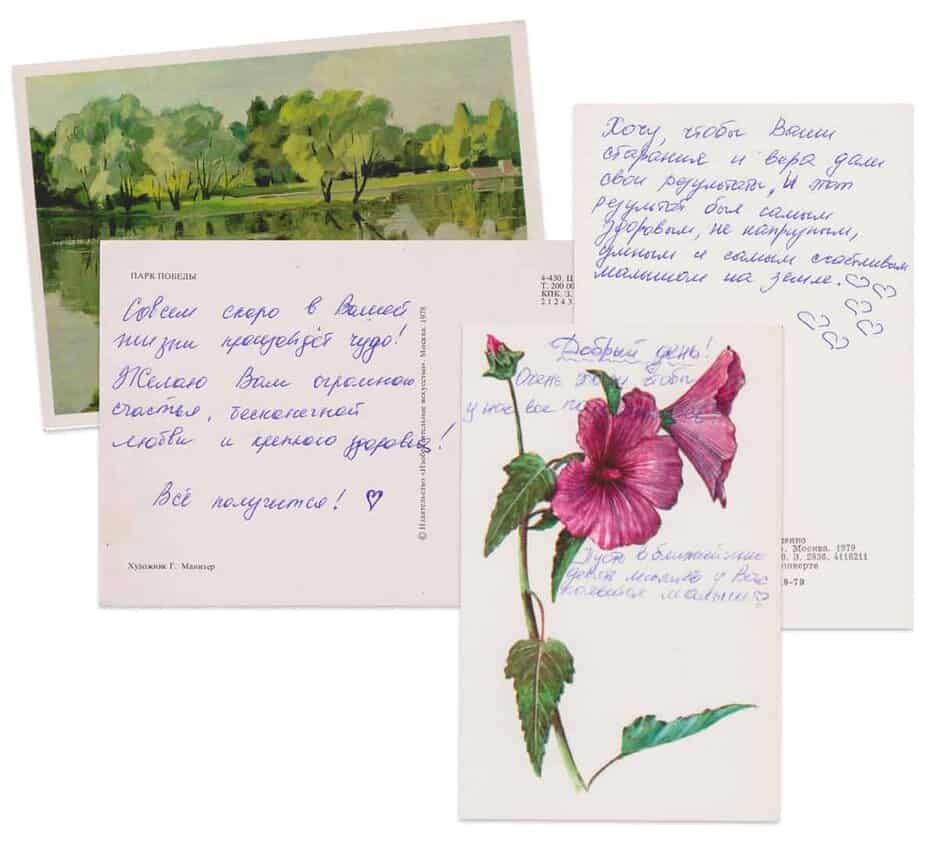 ПАРК ПОБЕДЫ
4-430. Ц
Т. 200 00
КПК. З.
2 1 2 4 3
Совсем скоро в Вашей
жизни произойдёт чудо!
Желаю Вам огромного
счастья, бесконечной
любви и крепкого здоровья!
Всё получится! ♡
© Издательство «Изобразительное искусство». Москва. 1978
Художник Г. Манизер
Хочу, чтобы Ваши
старания и вера дали
свои результаты, И этот
результат был самым
здоровым, не капризным,
умным и самым счастливым
малышом на земле. ♡♡
♡
♡♡
♡
Добрый день!
Очень чтобы
у вас все
Пусть в ближайшие
девять месяцев у Вас
появится малыш ♡
. Москва. 1979
0. З. 2836. 4116211
конверте
9-79